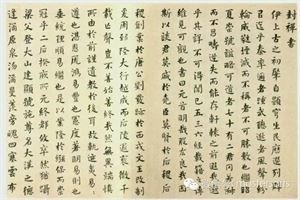 封禪書
伊上古之初肇自顥穹生民歷選列辟
迄乎秦率邇者踵武逖聽者風聲紛
綸威蕤堙滅而不稱者不可勝數繼昭
夏崇號謚略可道者七十有二君罔若淑
而不昌疇逆失而能存軒轅之前遐哉邈
乎其詳不可得聞已五三六經載籍之傳
維見可觀也書曰元首明哉股肱良哉因
斯以談君莫盛於堯臣莫賢於后稷后
稷創業於唐公劉發跡於西戎文王改制
爰周郅隆大行越成而后陵遲衰微千
載亡聲豈不善始善終哉然無異端慎
所由於前謹遺教於後耳故軌迹夷易
易遵也湛恩厖鴻易豐也憲度著明易則也
垂統理順易繼也是以業隆於繈褓而崇
冠乎二后揆厥所元終都攸卒然猶躡
梁父登泰山建顯號施尊名大漢之德
逢涌原泉沕潏曼羨旁魄四塞雲布